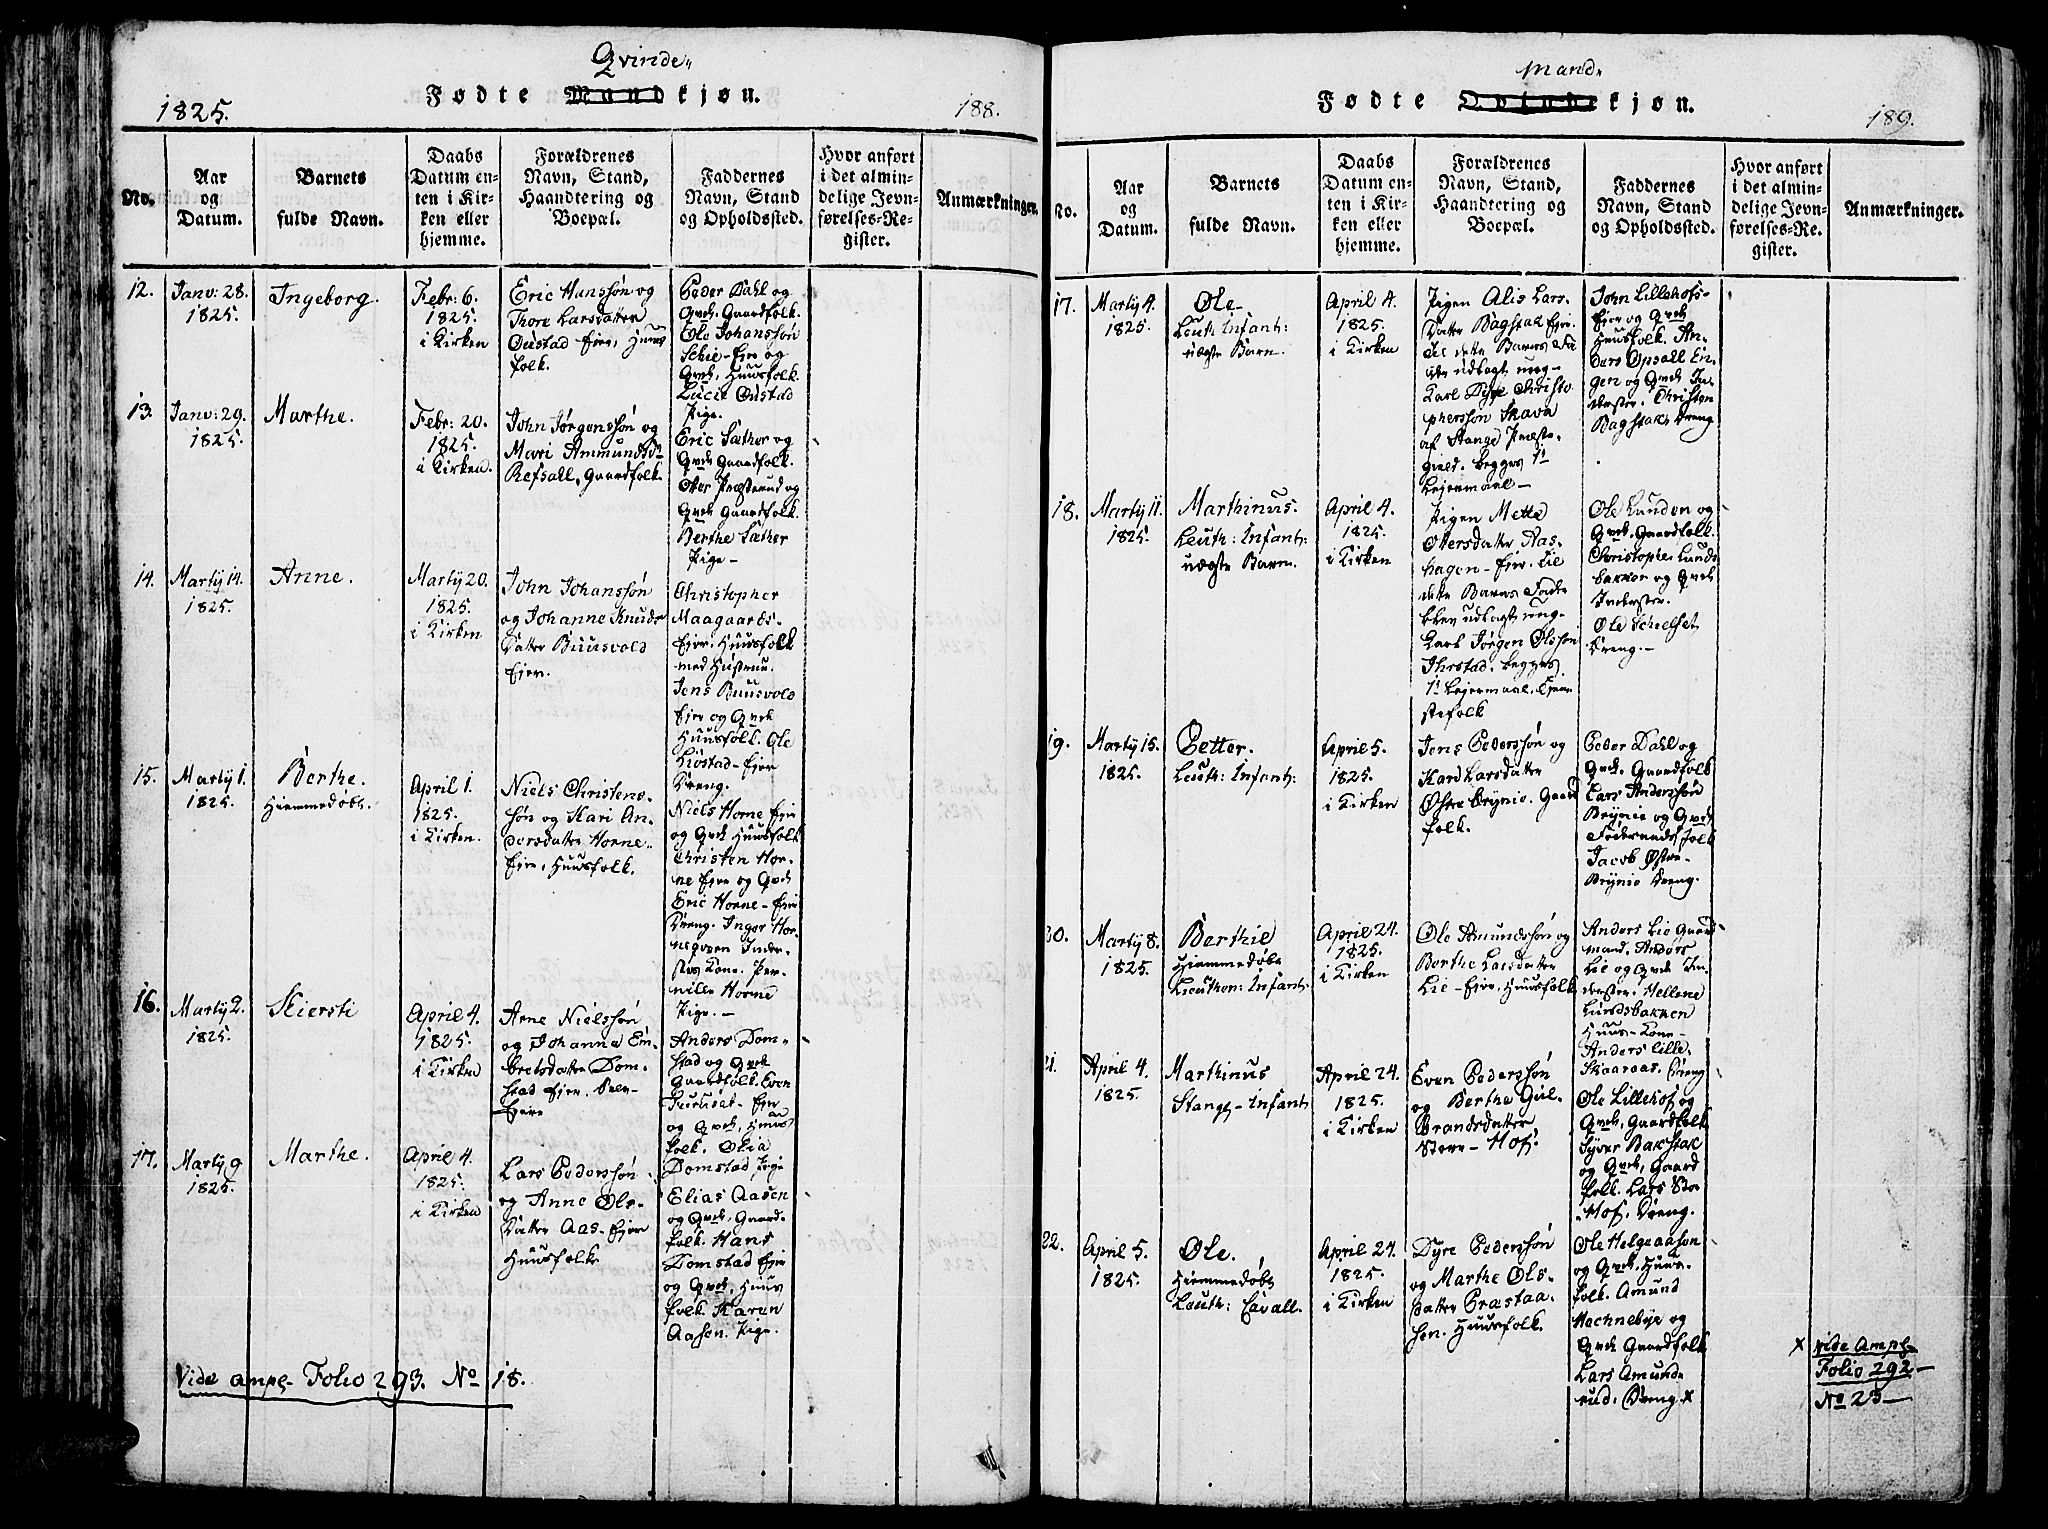 1825.
Qvinde-
Fødte Mandkjøn.
188.
No.
Aar
og
Datum.
Barnets
fulde Navn.
Daabs
Datum en-
ten i Kir-
ken eller
hjemme.
Forældrenes
Navn, Stand,
Haandtering og
Boepæl.
Faddernes
Navn, Stand
og Opholdssted.
Hvor anført
i det almin-
delige Jevn-
førelses-Re-
gister.
Anmærkninger.
12.
Janv: 28.
1825.
Ingeborg.
Febr: 6.
1825.
i Kirken
Eric Hanssøn og
Thore Larsdatter
Oustad Eier, Huus
folk.
Peder Dahl og
Qvck. Gaardfolk.
Ole Johanssøn
Schie-Eje og
Qvck. Huusfolk.
Lucie Oustad
Pige.
13.
Janv: 29.
1825.
Marthe.
Febr: 20.
1825.
i Kirken.
John Jørgenssøn og
Mari Ammundsd
Refsall, Gaardfolk.
Eric Sæther og
Qvck Gaardfolk.
Oter Præsterud og
Qvck Gaardfolk.
Berthe Sæther
Pige-
14.
Martÿ 14.
1825.
Anne.
Martÿ 20.
1825.
i Kirken
John Johanssøn
og Johanne Knuds
Datter Buusvold
Ejer.
Christopher
Maagaards-
Ejer. Huusfolk
med Hustrue.
Jens Buusvold
Ejer og Qvck
Huusfolk. Ole
Liostad-Ejer
Dreng.
15.
Martÿ 1.
1825.
Berthe.
Hiemmedøbt.
April 1.
1825.
i Kirken.
Niels Christens-
søn og Kari An-
dersdatter Horne-
Ejer, Huusfolk.
Niels Horne Ejer
og Qvck Huusfolk
Christen Hor-
ne Ejer og Qvck
Eric Horne-Ejer
Dreng. Inger Hor-
neqvæen Inder-
stes Kone. Per-
nille Horne
Pige.-
16.
Martÿ 2.
1825.
Kiersti
April 4.
1825.
i Kirken
Arne Nielssøn
og Johanne Em-
bretsdatter Dom-
stad Ejer. Selv-
Ejere
Anders Dom-
stad og Qvck
Gaardfolk. Even
og Qvck, Huus
folk. Olia
Domstad Pige
17.
Martÿ 9
1825.
Marthe.
April 4.
1825.
i Kirken
Lars Pederssøn
og Anne Ols-
Datter Aas-Ejer
Huusfolk
Elias Aasen
og Qvck, Gaard-
folk. Hans
Domstad Ejer
og Qvck, Huus
folk. Karen
Aasen. Pige.
Vide ampl- Folio 293. No 18.
Mand-
Fødte Qvindekjøn.
189.
No.
Aar
og
Datum.
Barnets
fulde Navn.
Daabs
Datum en-
ten i Kir-
ken eller
hjemme.
Forældrenes
Navn, Stand,
Haandtering og
Boepæl.
Faddernes
Navn, Stand
og Opholdssted.
Hvor anført
i det almin-
delige Jevn-
førelses-Re-
gister.
Anmærkninger.
17.
Martÿ 4.
1825.
Ole-
Leuth: Infant:
uægte Barn.
April 4.
1825.
i Kirken
Pigen Alis Lars-
Datter Bagstak Ejer.
til dette Barns Fa
der udlagt ung-
Karl Dyre Christo
pherssøn Skava
af Stange Præste-
gield. begges 1te
Lejermaal-
John Lillehofs-
Ejer og Qvck
Huusfolk. An-
ders Opsall En-
gen og Qvck In-
derster. Christen
Bagstak, Dreng
18.
Martÿ 11.
1825.
Marthinus.
Leuth: Infant:
uægte Barn.
April 4.
1825.
i Kirken
Pigen Mette
Otersdatter Aas-
hagen-Ejer. til
dette Barns Fader
blev udlagt ung-
Karl Jørgen Olssøn
Ihrstad. begges
1te Lejermaal. Tjene
stefolk
Ole Lunden og
Qvck. Gaardfolk.
Christopher Lunds-
bakken og Qvck
Inderster.
Ole Scheelset
Dreng.-
19.
Martÿ 15.
1825.
Petter.
Leuth: Infant:
April 5.
1825.
i Kirken
Jens Pederssøn og
Kari Larsdatter
Østre Brynie. Gaard
folk.
Peder Dahl og
Qvck. Gaardfolk
Lars Anderssøn
Brynie og Qvck
Føderaadsfolk
Jacob Østre-
Brynie Dreng.
20.
Martÿ 8.
1825.
Berthie
Hiemmedøbt
Lieuthen: Infant:
April 24.
1825.
i Kirken
Ole Amundssøn og
Berthe Larsdatter
Lie-Ejer, Huusfolk
Anders Lie Gaard-
mand. Anders
Lie og Qvck In-
derster. Hellene
Lundsbakken
Huus-Kone-
Anders Lille-
Skaaraas. Dreng
21.
April 4.
1825.
Marthinus
Stange-Infant
April 24.
1825.
i Kirken
Even Pederssøn
og Berthe Gul-
Brandsdatter
Store-Hof.
Ole Lillehof og
Qvck, Gaardfolk
Syver Bakstak
og Qvck, Gaard
folk. Lars Sto-
-Hof, Dreng.
22.
April 5.
1825.
Ole.
Hiemmedøbt
Leuth: Cavall.
April 24.
1825.
i Kirken
Dyre Pederssøn
og Marthe Ols-
Datter Præstaa-
sen. Huusfolk.
Ole Helgeaasen
og Qvck, Huus-
folk. Amund
Hachnebye og
Qvck Gaardfolk
Lars Amunds
rud. Dreng x
x Vide ampl-
Folio 292-
No 23-